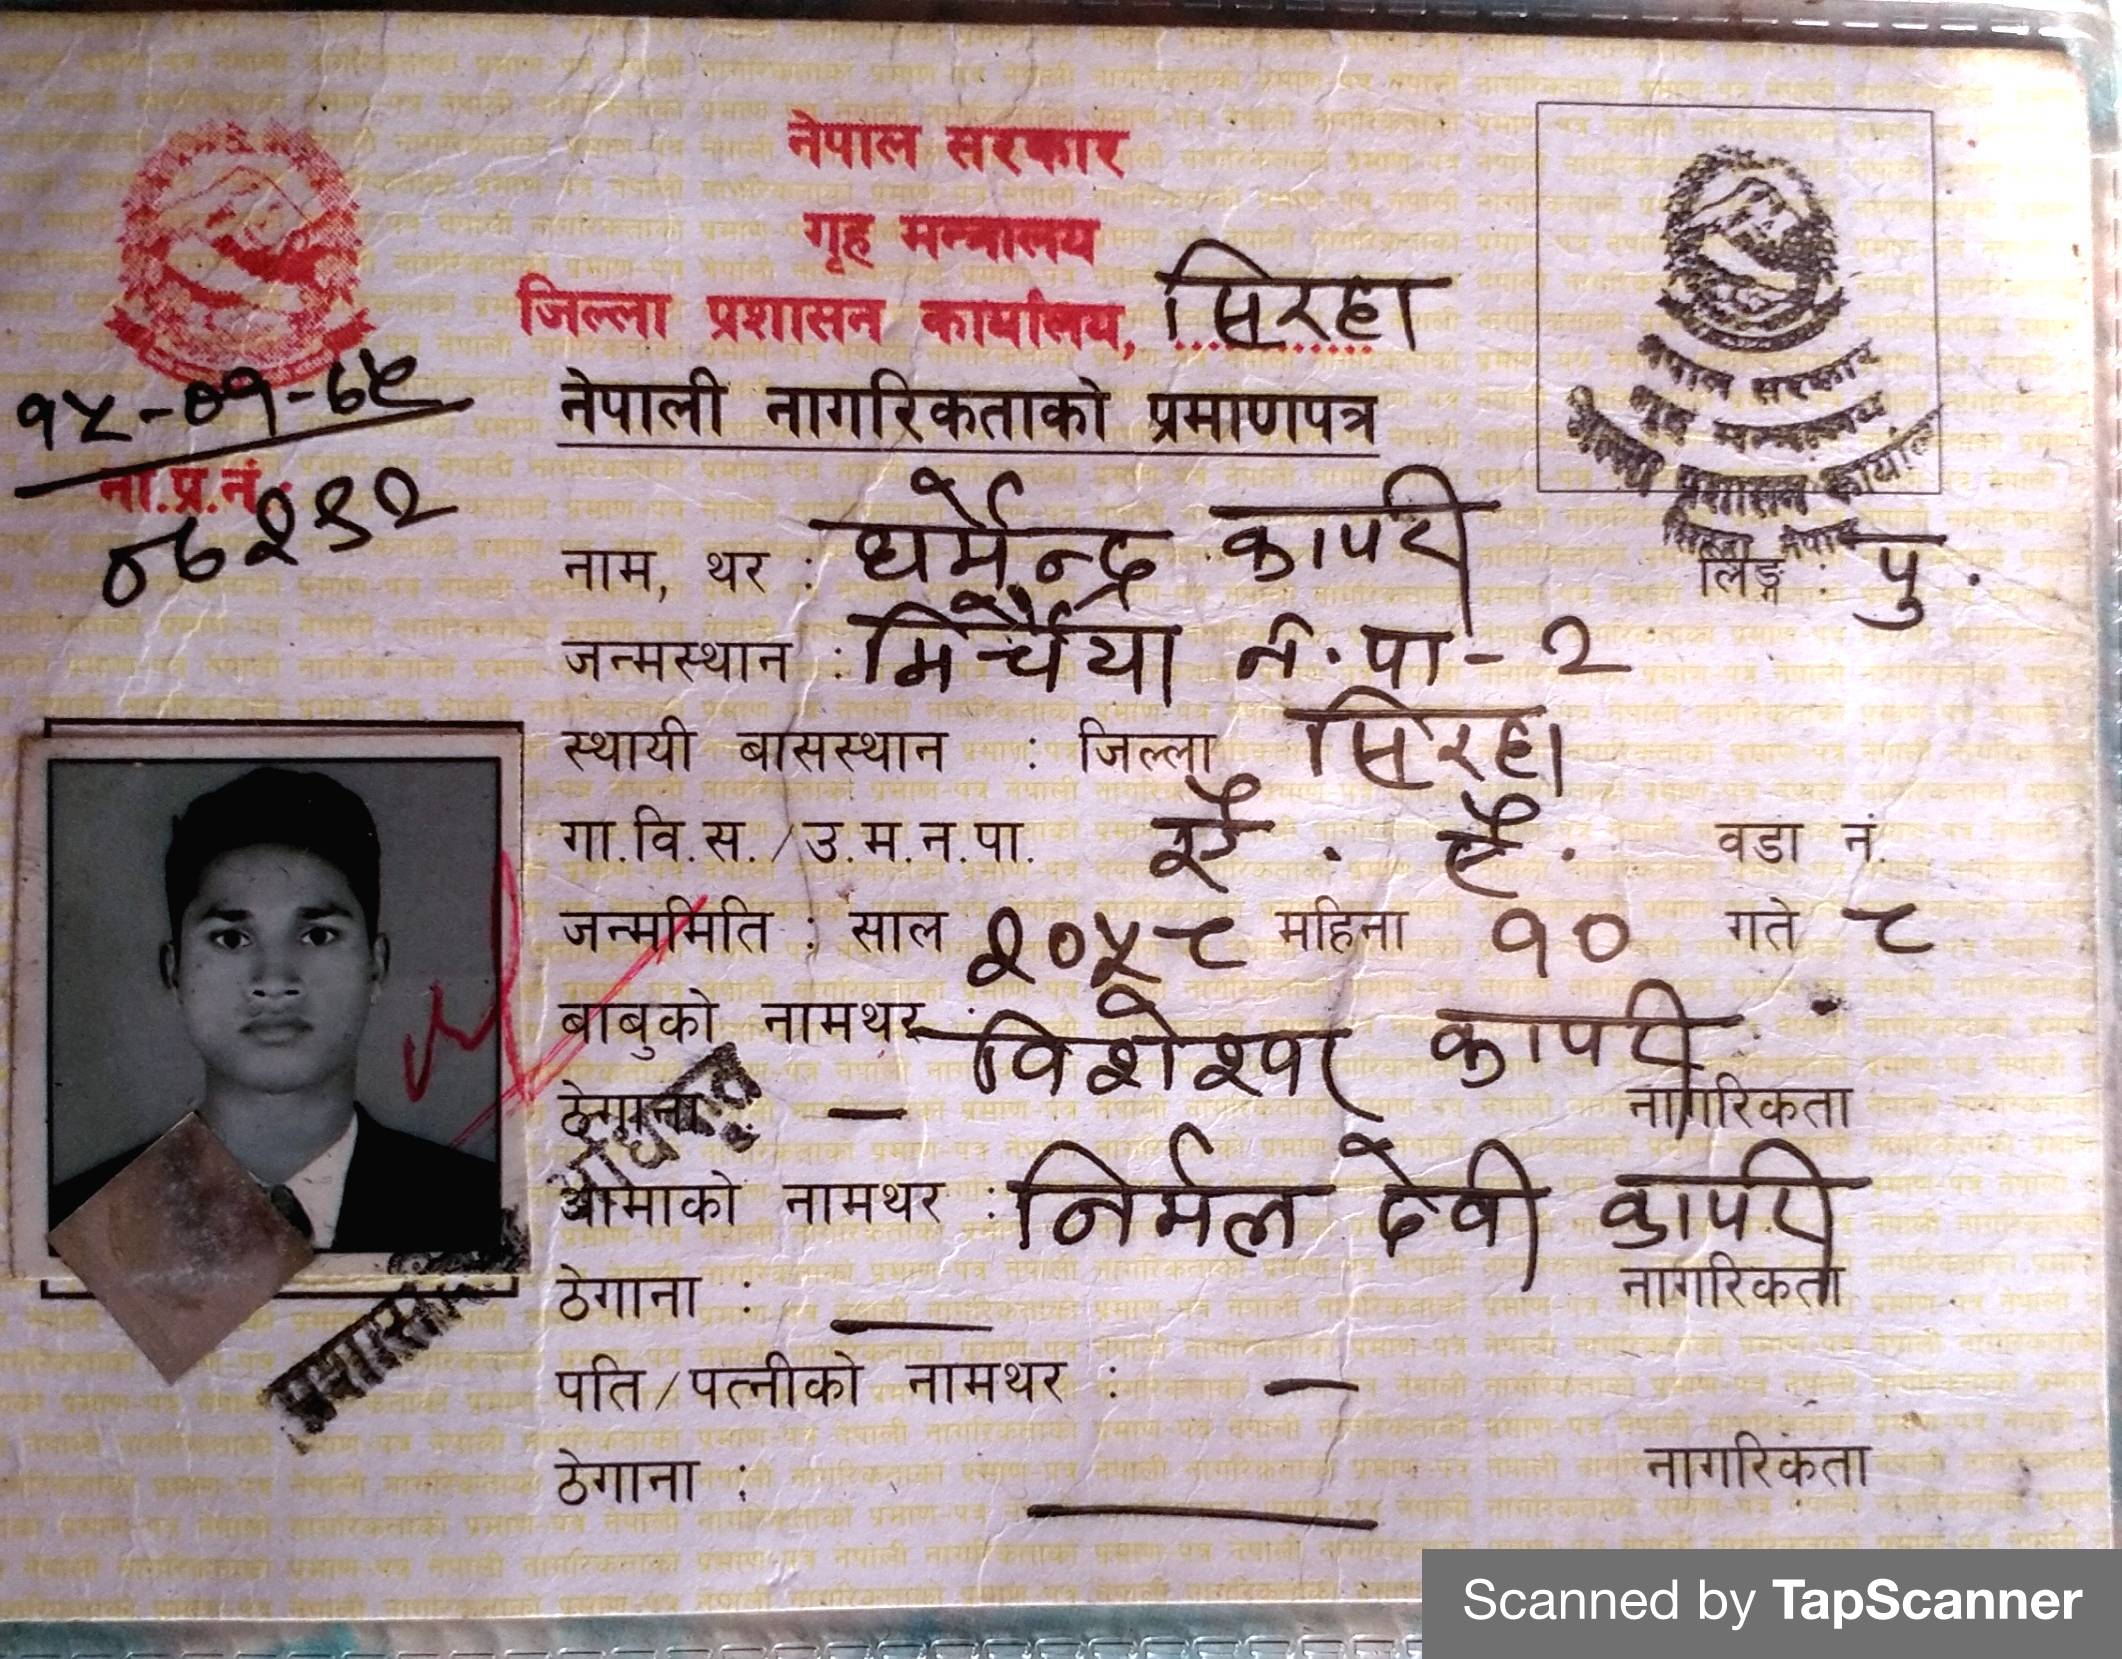 नेपाल सरकार
गृह मन्त्रालय
जिल्ला प्रशासन कार्यालय, सिरहा
नेपाली नागरिकताको प्रमाणपत्र
नेपाल सरकार
गृह मन्त्रालय
जिल्ला प्रशासन कार्यालय
सिरहा नेपाल
१५-०१-७५
ना.प्र.नं.
नाम, थर : धर्मेन्द्र कापरी लिङ्ग : पु.
जन्मस्थान : मिर्चैया न.पा-२
स्थायी बासस्थान : जिल्ला सिरहा
गा.वि.स./उ.म.न.पा. ऐ. ऐ. वडा नं.
जन्ममिति : साल २०५८ महिना १० गते ८
बाबुको नामथर विशेश्वर कापरी
ठेगाना : — नागरिकता
आमाको नामथर : निर्मल देवी कापरी
ठेगाना : — नागरिकता
पति/पत्नीको नामथर : —
ठेगाना : — नागरिकता
Scanned by TapScanner